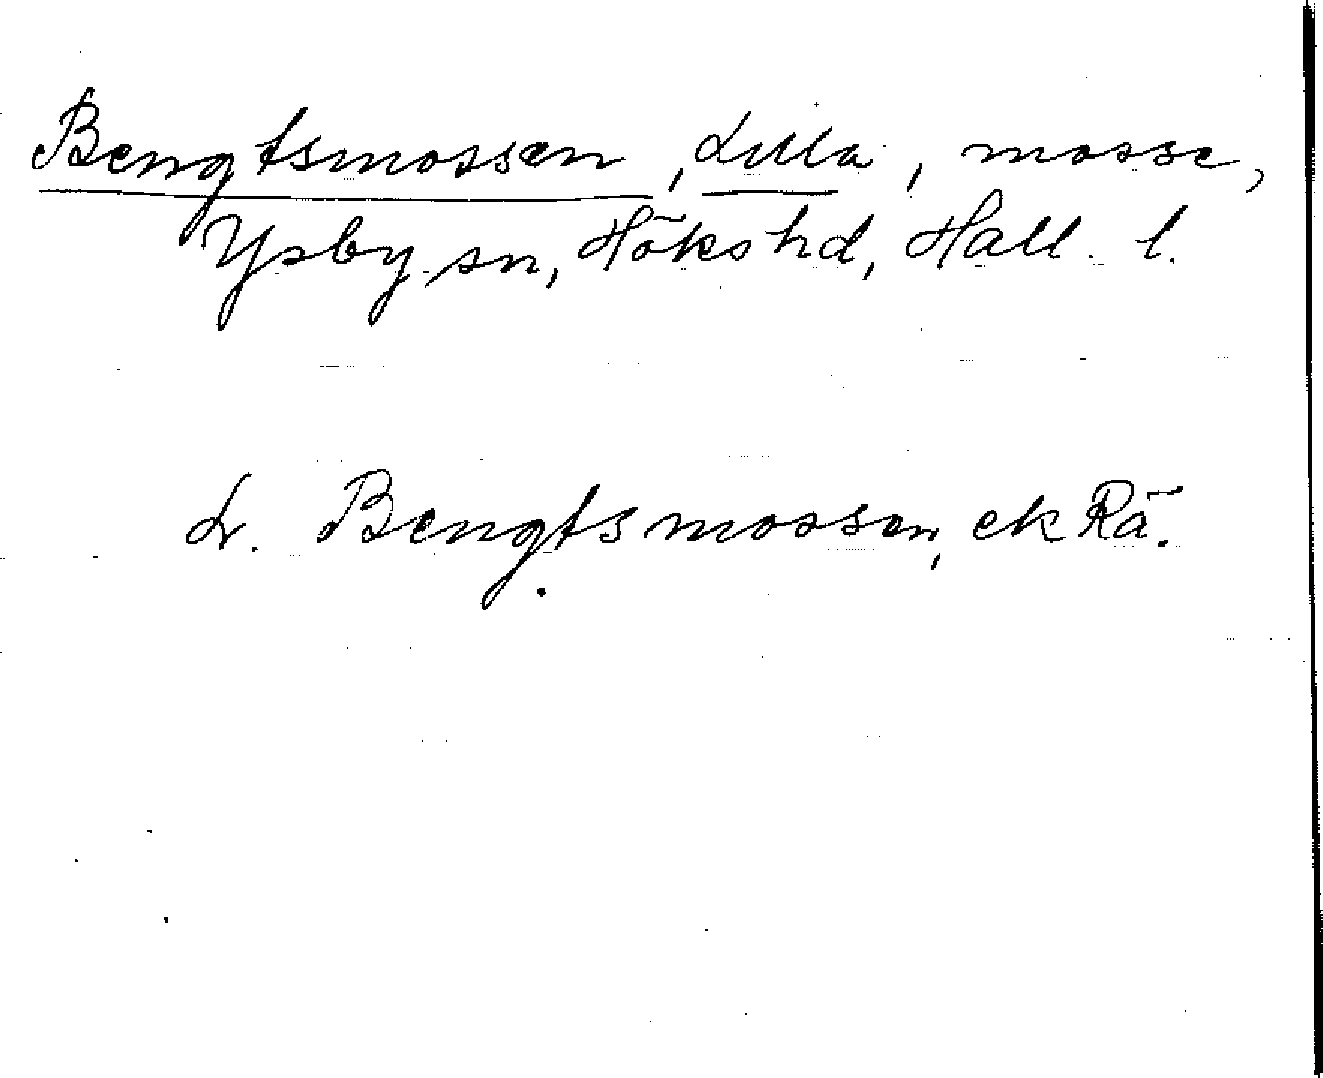 Bengtsmossen, Lilla, mosse,
Ysby sn, Höks hd, Hall. l.
L. Bengtsmossen, ek Rä.